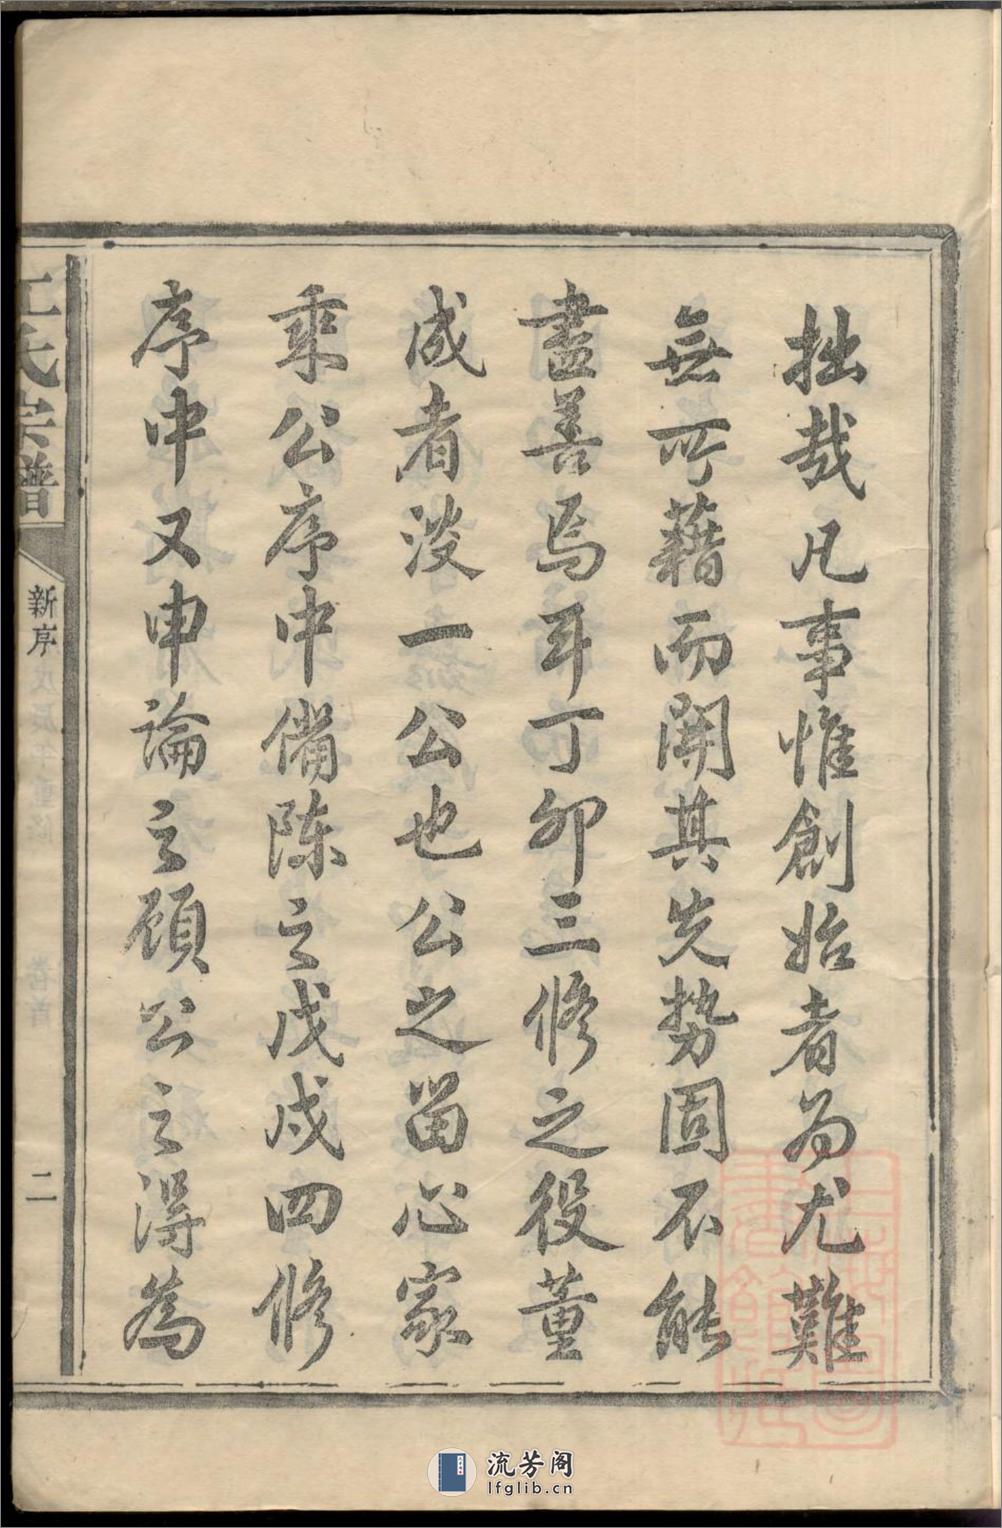 拙哉凡事惟創始者为尤難
無可藉而開其先势固不能
盡善焉耳丁卯三修之役董
成者淡一公也公之留心家
乘公序中備陈之戊戌四修
序中又申論之顧公之得為
氏宗譜
新序
二
上海圖書館藏
流芳阁
lfglib.cn